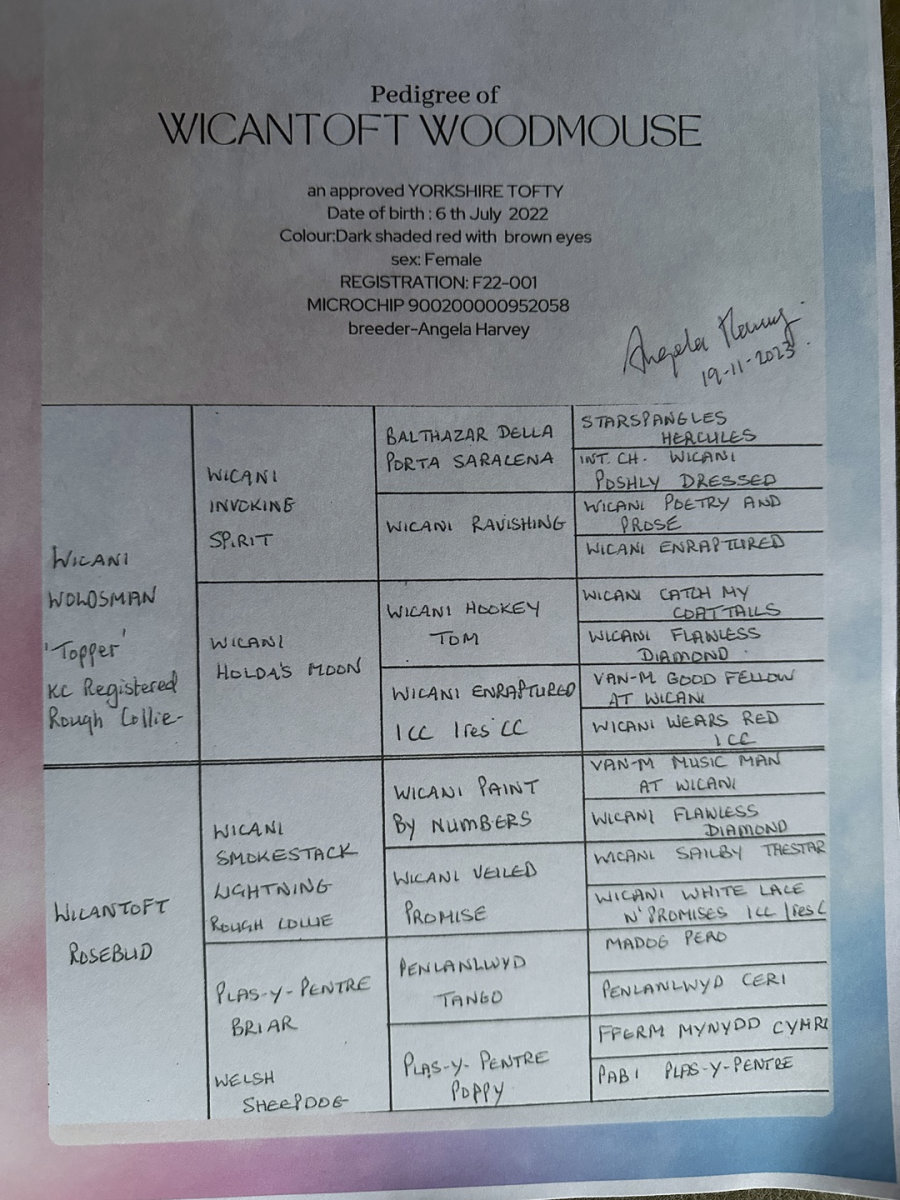 Pedigree of
WICANTOFT WOODMOUSE
an approved YORKSHIRE TOFTY
Date of birth : 6 th July 2022
Colour:Dark shaded red with brown eyes
sex: Female
REGISTRATION: F22-001
MICROCHIP 900200000952058
breeder-Angela Harvey
Angela Harvey
19-11-2023
WICANI
WOLOSMAN
'Topper'
KC Registered
Rough Collie-
WICANI
INVOKING
SPIRIT
BALTHAZAR DELLA
PORTA SARACENA
STARSPANGLES
HERCULES
INT. CH. WICANI
POSHLY DRESSED
WICANI RAVISHING
WICANI POETRY AND
PROSE
WICANI ENRAPTURED
WICANI
HOLDA'S MOON
WICANI HOOKEY
TOM
WICANI CATCH MY
COATTAILS
WICANI FLAWLESS
DIAMOND
WICANI ENRAPTURED
1CC 1res CC
VAN-M GOOD FELLOW
AT WICANI
WICANI WEARS RED
1CC
WICANTOFT
ROSEBUD
WICANI
SMOKESTACK
LIGHTNING
ROUGH COLLIE
WICANI PAINT
BY NUMBERS
VAN-M MUSIC MAN
AT WICANI
WICANI FLAWLESS
DIAMOND
WICANI VEILED
PROMISE
WICANI SAILBY THESTAR
WICANI WHITE LACE
N' PROMISES 1CC 1res C
PLAS-Y-PENTRE
BRIAR
WELSH
SHEEPDOG
PENLANLWYD
TANGO
MADOG PERO
PENLANLWYD CERI
PLAS-Y-PENTRE
POPPY
FFERM MYNYDD CYMR
PABI PLAS-Y-PENTRE